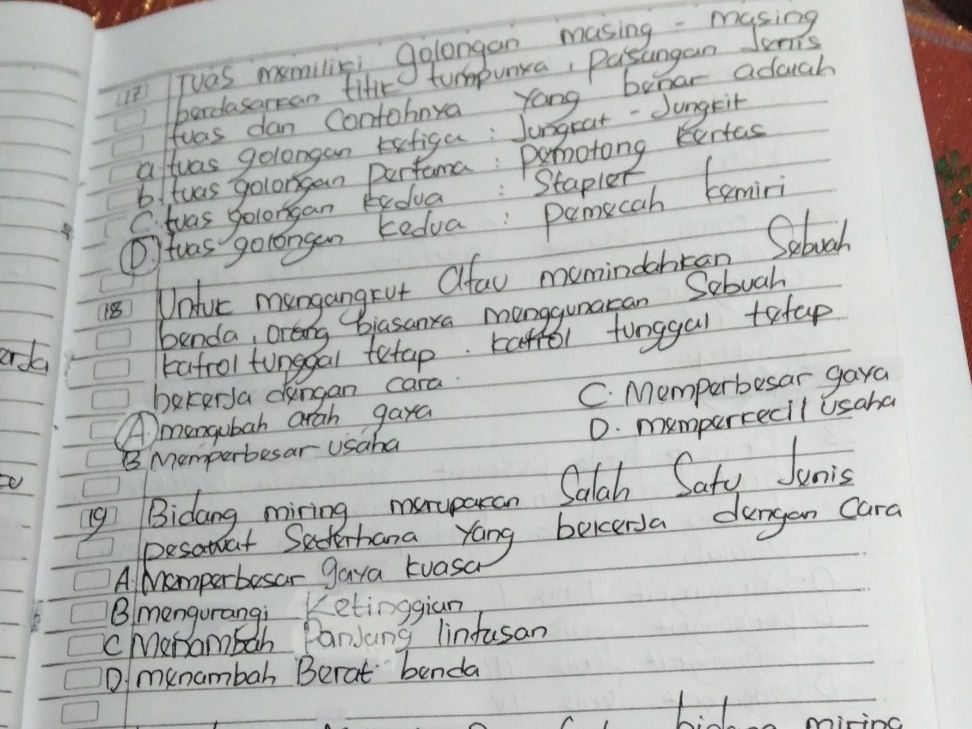 17 Tuas memiliki golongan masing - masing
berdasarkan titik tumpunya, Pasangan Jenis
tuas dan Contohnya yang benar adalah
a. tuas golongan ketiga : Jungkat - Jungkit
b. tuas golongan Pertama : Pemotong Kertas
C. tuas golongan kedua : Stapler
D. tuas golongan kedua : Pemecah kemiri
18 Untuk mengangkut Atau memindahkan Sebuah
benda, orang biasanya menggunakan Sebuah
katrol tunggal tetap. katrol tunggal tetap
bekerja dengan cara.
A. mengubah arah gaya C. Memperbesar gaya
B Memperbesar usaha D. memperkecil usaha
19 Bidang miring merupakan Salah Satu Jenis
Pesawat Sederhana Yang bekerja dengan Cara
A. Memperbesar gaya kuasa
B mengurangi Ketinggian
C Menambah Panjang lintasan
D. menambah Berat benda
bidang miring